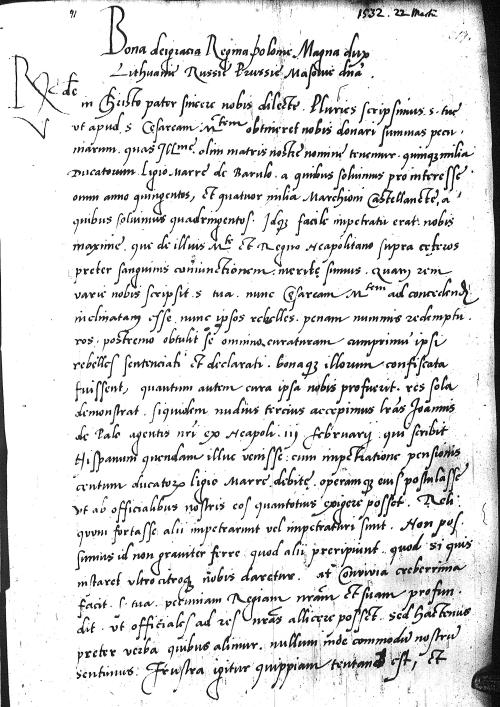 91
1532. 22 Martii
Bona dei gracia Regina polonie Magna dux
Lithuanie Russie Prussie Masovie dna.
Rde
in Christo pater sincere nobis dilecte. Pluries scripsimus. s. tue
ut apud. s. Cesaream Mtem obtineret nobis donari summas pecu
niarum. quas Illme. olim matris nostre nomine tenemur. quinqz milia
Ducatorum. Ligio Marre de Barulo. a quibus solvimus pro interesse
omni anno quingentos, Et quatuor milia Marchioni Castellanete, a
quibus solvimus quadringentos. Idqz facile impetratu erat. nobis
maxime. que de illius Mte et Regno Neapolitano supra ceteros
preter sanguinis coniunctionem. merite simus. Quam rem
varie nobis scripsit. s. tua. nunc Cesaream Mtem ad concedend
inclinatam esse. nunc ipsos rebelles. penam nummis redemptu
ros. postremo obtulit se omnino curaturam cumprimum ipsi
rebelles sentenciati et declarati. bonaqz illorum confiscata
fuissent, quantum autem cura ipsa nobis profuerit. res sola
demonstrat. siquidem nudius tercius accepimus lras Joannis
de Pale agentis nri ex Neapoli. iij februarij. qui scribit
Hispanum quendam illuc venisse. cum impetratione pensionis
centum ducatorz ligio Marre debite. operamqz eius postulasse
ut ab officialibus nostris eos quantotius exigere posset. Reli
quum fortasse alii impetrarunt vel impetraturi sunt. Non pos
sumus id non graviter ferre. quod alii preripiunt. quod si quis
instaret ultro citroqz nobis daretur. at Convivia creberrima
facit. s. tua. pecuniam Regiam nram et suam profun
dit. ut officiales ad res nras allicere posset. sed hactenus
preter verba quibus alimur. nullum inde commodum nostrum
sentimus. Frustra igitur quippiam tentand est, Et